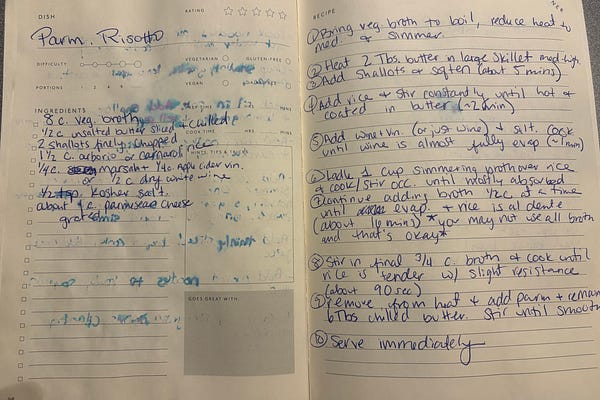 DISH
RATING
Parm. Risotto
DIFFICULTY
VEGETARIAN
GLUTEN-FREE
PORTIONS 1 2 4 6 8
VEGAN
INGREDIENTS
HRS MINS
8 c. veg. broth
1/2 c unsalted butter sliced + chilled
COOK TIME HRS MINS
2 shallots finely chopped
HINTS, TIPS &
1 1/2 c. arborio or carnaroli rice
1/4 c. marsala + 1/4 c apple cider vin.
or 1/2 c dry white wine
1/2 tsp. kosher salt
about 1/4 c. parmesean cheese
grated
GOES GREAT WITH
RECIPE
① Bring veg. broth to boil, reduce heat to
med. & simmer.
② Heat 2 Tbs. butter in large skillet med-high
③ Add shallots & soften (about 5 mins)
④ Add rice & stir constantly until hot &
coated in butter (~2 min)
⑤ Add wine + vin. (or just wine) & salt. Cook
until wine is almost fully evap (~1 min)
⑥ Ladle 1 cup simmering broth over rice
& cook/stir occ. until mostly absorbed
⑦ Continue adding broth 1/2 c at a time
until evap. + rice is al dente
(about 16 mins) *you may not use all broth
and that's okay*
⑧ Stir in final 3/4 c. broth & cook until
rice is tender w/ slight resistance
(about 90 sec)
⑨ remove from heat & add parm + remain
6 Tbs chilled butter. Stir until smooth
⑩ Serve immediately